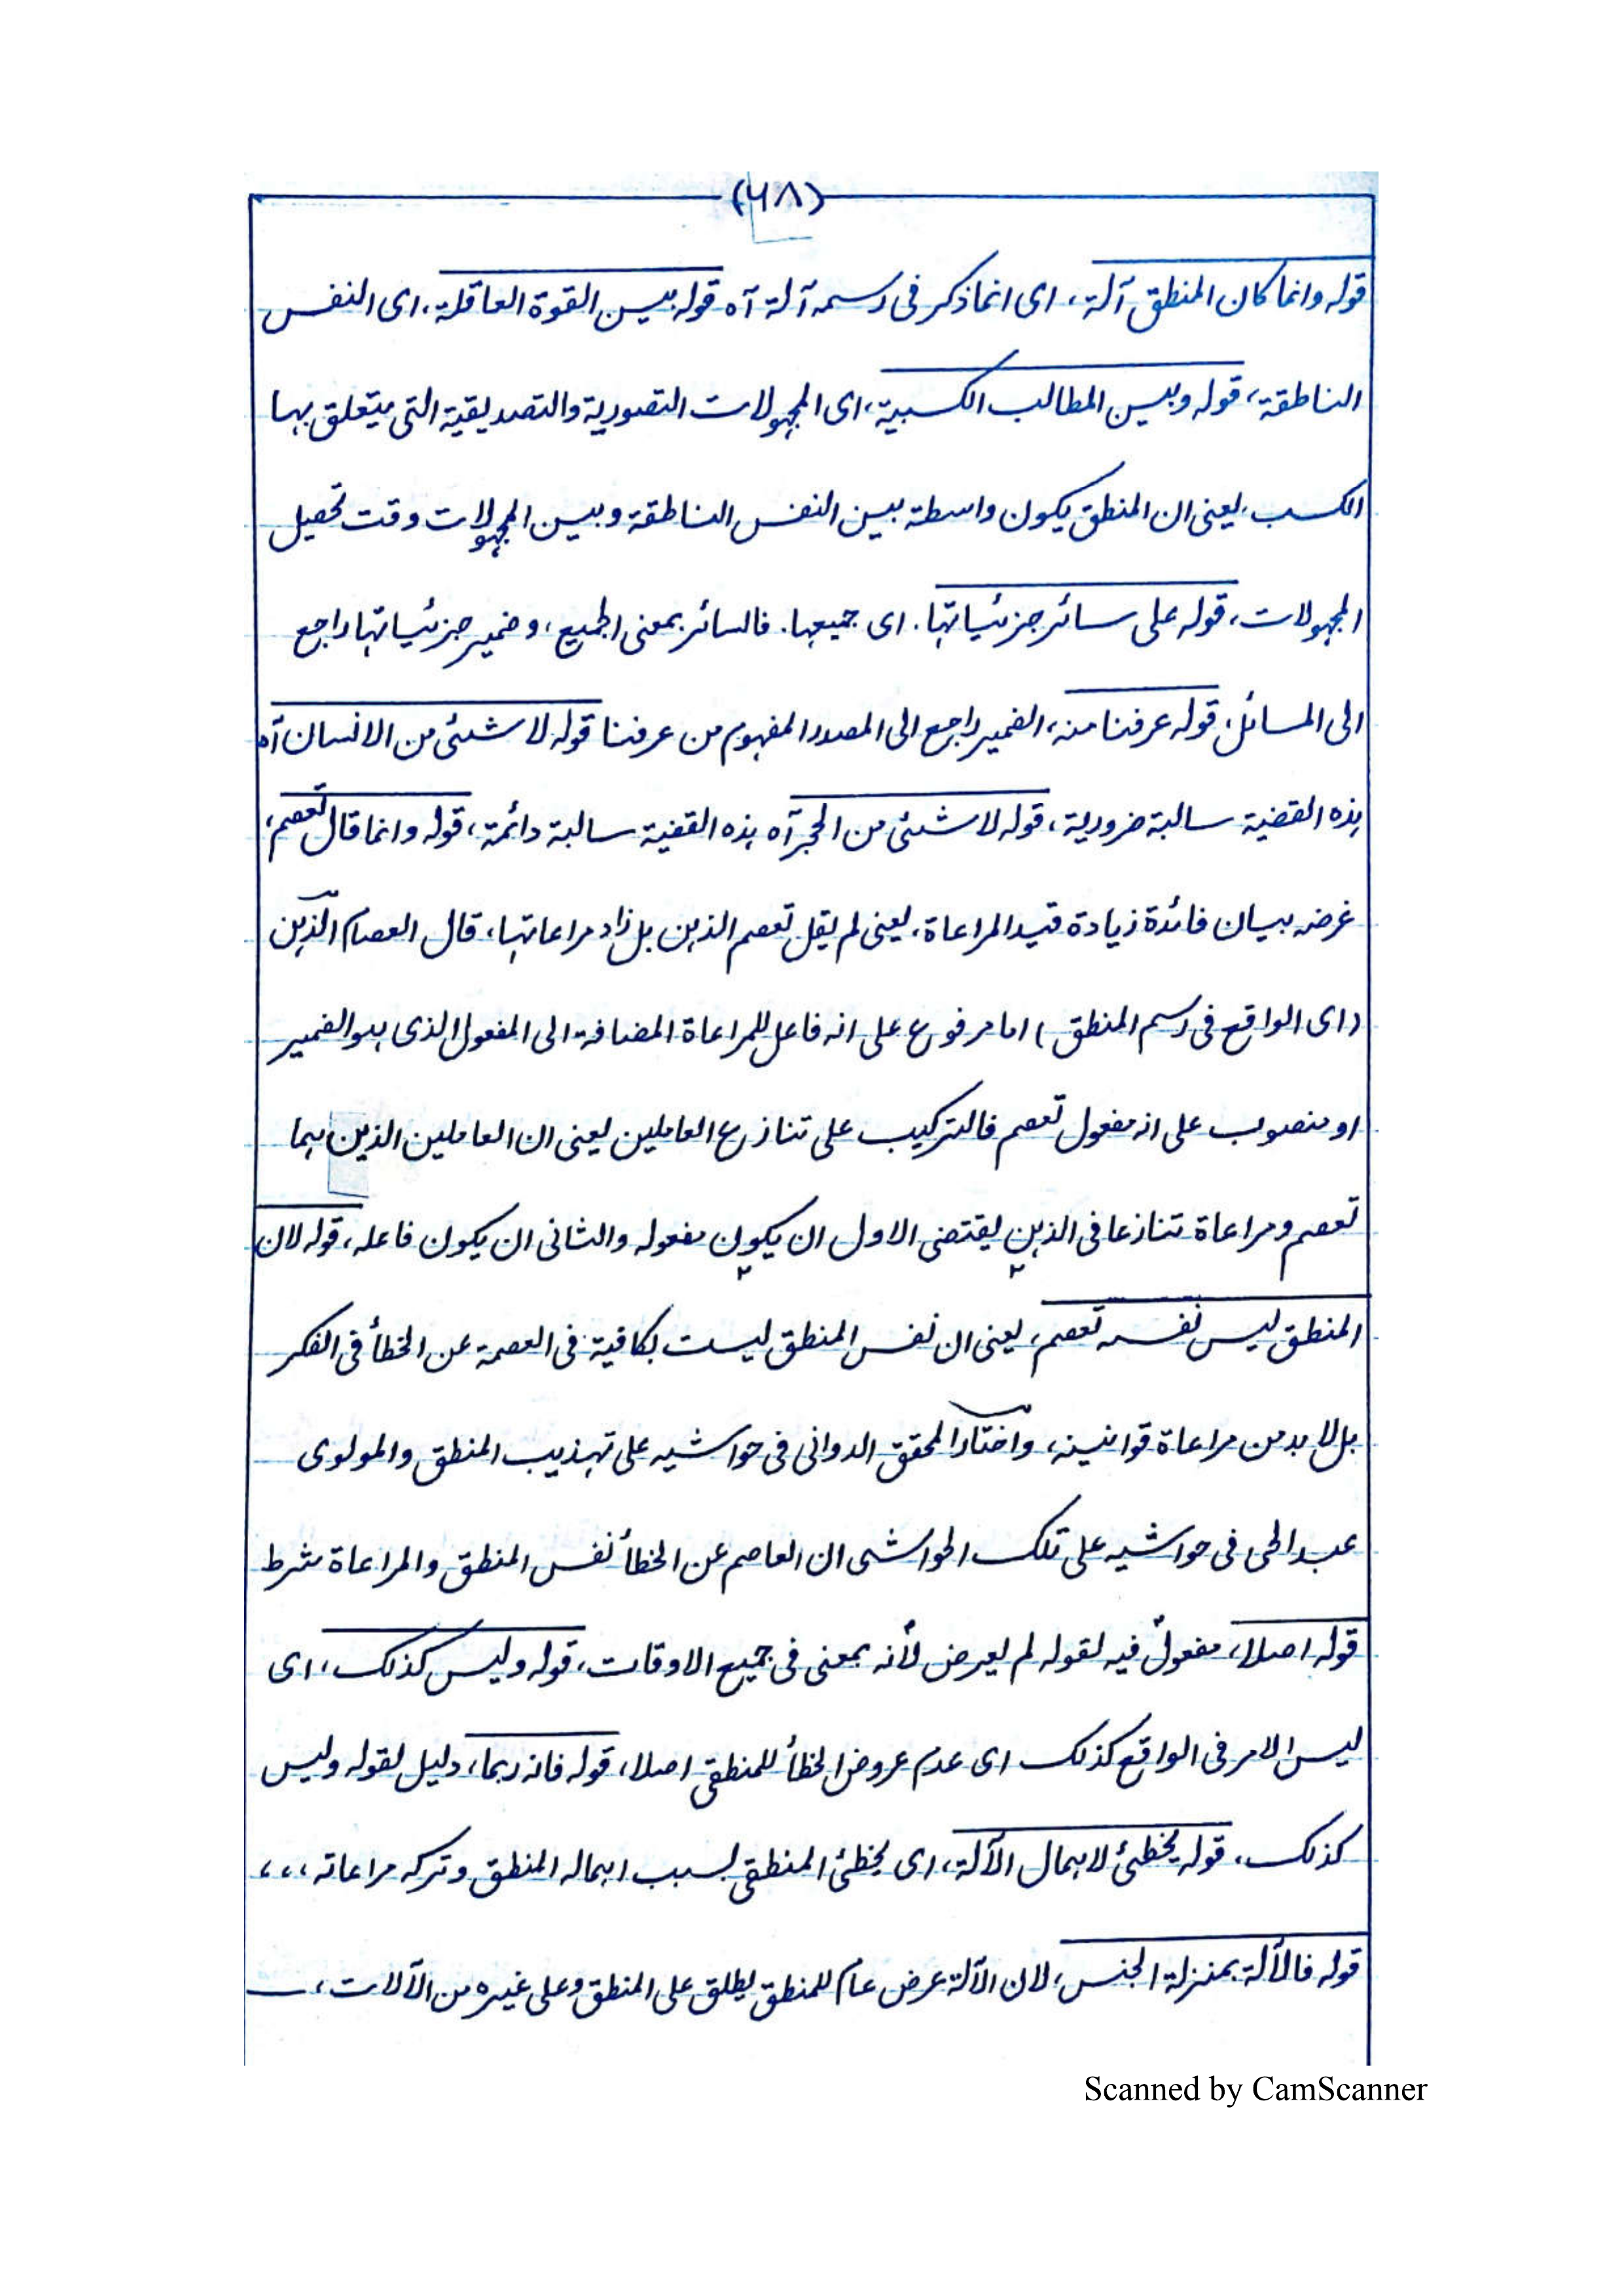 (٦٨)
قوله وانما كان المنطق آلة، اى انما ذكر فى رسمه آلة آه قوله بين القوة العاقلة، اى النفس
الناطقة، قوله وبين المطالب الكسبية، اى المجهولات التصورية والتصديقية التى يتعلق بها
الكسب، يعنى ان المنطق يكون واسطة بين النفس الناطقة وبين المجهولات وقت تحصيل
المجهولات، قوله على سائر جزئياتها، اى جميعها. فالسائر بمعنى الجميع، وضمير جزئياتها راجع
الى المسائل، قوله عرفنا منه، الضمير راجع الى المصدر المفهوم من عرفنا قوله لا شئى من الانسان آه
هذه القضية سالبة ضرورية، قوله لا شئى من الحجر آه هذه القضية سالبة دائمة، قوله وانما قال تعصم،
غرضه بيان فائدة زيادة قيد المراعاة، يعنى لم يقل تعصم الذهن بل زاد مراعاتها، قال العصام الذهن
(اى الواقع فى رسم المنطق) اما مرفوع على انه فاعل للمراعاة المضافة الى المفعول الذى هو الضمير
او منصوب على انه مفعول تعصم فالتركيب على تنازع العاملين يعنى ان العاملين الذين هما
تعصم ومراعاة تنازعا فى الذهن يقتضى الاول ان يكون مفعوله والثانى ان يكون فاعله، قوله لان
المنطق ليس نفسه تعصم، يعنى ان نفس المنطق ليست بكافية فى العصمة عن الخطأ فى الفكر
بل لا بد من مراعاة قوانينه، واختار المحقق الدوانى فى حواشيه على تهذيب المنطق والمولوى
عبد الحى فى حواشيه على تلك الحواشى ان العاصم عن الخطأ نفس المنطق والمراعاة شرط
قوله اصلا، مفعولٌ فيه لقوله لم يعرض لأنه بمعنى فى جميع الاوقات، قوله وليس كذلك، اى
ليس الامر فى الواقع كذلك اى عدم عروض الخطأ للمنطقى اصلا، قوله فانه ربما، دليل لقوله وليس
كذلك، قوله يخطئ لاهمال الآلة، اى يخطئ المنطقى بسبب اهماله المنطق وتركه مراعاته ،،،
قوله فالآلة بمنزلة الجنس، لان الآلة عرض عام للمنطق يطلق على المنطق وعلى غيره من الآلات،
Scanned by CamScanner